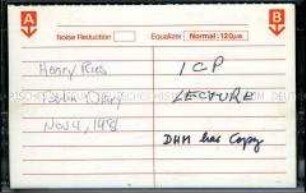 A
B
Noise Reduction
Equalizer Normal: 120µs
Henry Ries
ICP
LECTURE
Nov 4, 198
DHM has Copy